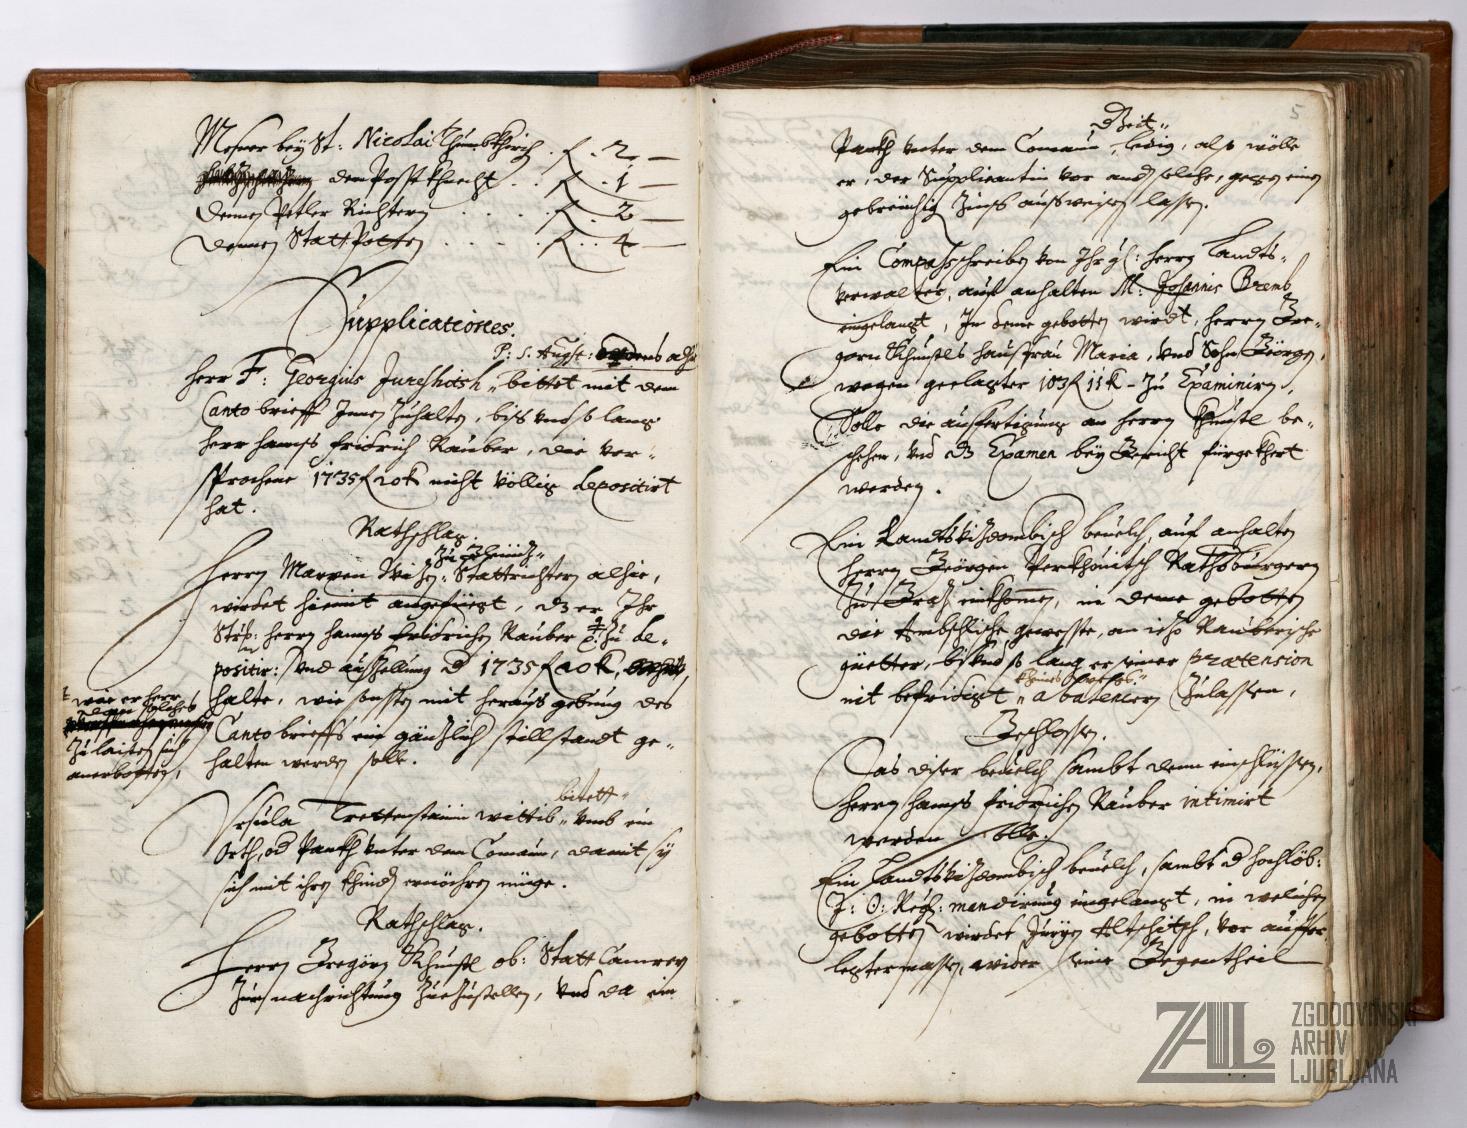 Mesner bey St: Nicolai Thumbkhirch . f . 2 . —
dem Posst Khnecht . . f . 1 —
Denen Petler Richtern . . . . f . 2 —
Denen Statt Potten . . . . f . . 4 —
Supplicationes.
P: S: Augst: ordens alhie
Herr F: Georgius Jureshosh, bittet mit dem
Canto brieff Innen Zuhalten, biss und so lang
herr Hannss Fridrich Rauber, die ver-
sprochene 1735 f 20 k nicht völlig depositirt
hat.
Rathschlag.
Herrn Marxen Wizen: Stattrichtern alhie,
wirdet hiemit angefüegt, dz er Ihr
herrn Hannss Fridrichen Rauber zu de-
positir: und ausstellung d 1735 f 20 k,
halte, wie sonsten mit heraussgebung des
Canto brieffs ein gänzlich stillstandt ge-
halten werden solle.
wie er herr
Zu laiten sich
anerbotten,
bitett
Ursula wittib, umb ein
Orth, od Pankh unter dem Comaun, damit sy
sich mit ihren khindern ernöhren müge.
Rathschlag.
Herrn Gregorn Khunstl ob: Statt Camrer
Zur nachrichtung Zuezustellen, und da ein
5
Zeit
Pankh unter dem Comaun, ledig, als wölle
er, der Supplicantin vor andern solche, gegen einen
gebreüchig Zinss aussweisen lassen.
Ein Compassschreiben von Ihr g: herrn Landts-
verwalter, auf anhalten M: Joannis Bremb
eingelangt, In deme gebotten wirdt, herrn Gre-
gorn Khunstls haussfrau Maria, und Sohn Geörgen,
wegen geclagter 103 f 11 k - zu Examinirn,
Solle die aussfertigung an herrn Khunstl be-
schehen, und dz Examen bey Gericht fürgekhert
werden.
Ein Landtsvizdombisch beuelch, auf anhalten
herrn Geörgen Perkhouitsch Rathsburgern
Zu Graz einkhomen, in deme gebotten
die Ambschliche gewesste, an iezo Rauberische
güetter, biss und so lang er seiner praetension
nit befridigt, abalenern Zulassen,
Geschlossen.
Das diser beuelch sambt denen einschlüssen,
herrn Hannss Fridrichen Rauber intimirt
werden solle.
Ein Landtsvizdombisch beuelch, sambt d hochlöb:
I: O: Reg: mandirung eingelangt, in welichen
gebotten wirdet Juryen Altschitsch, vor ausser
legtermassen, wider seine Gegentheil
ZAL
ZGODOVINSKI
ARHIV
LJUBLJANA